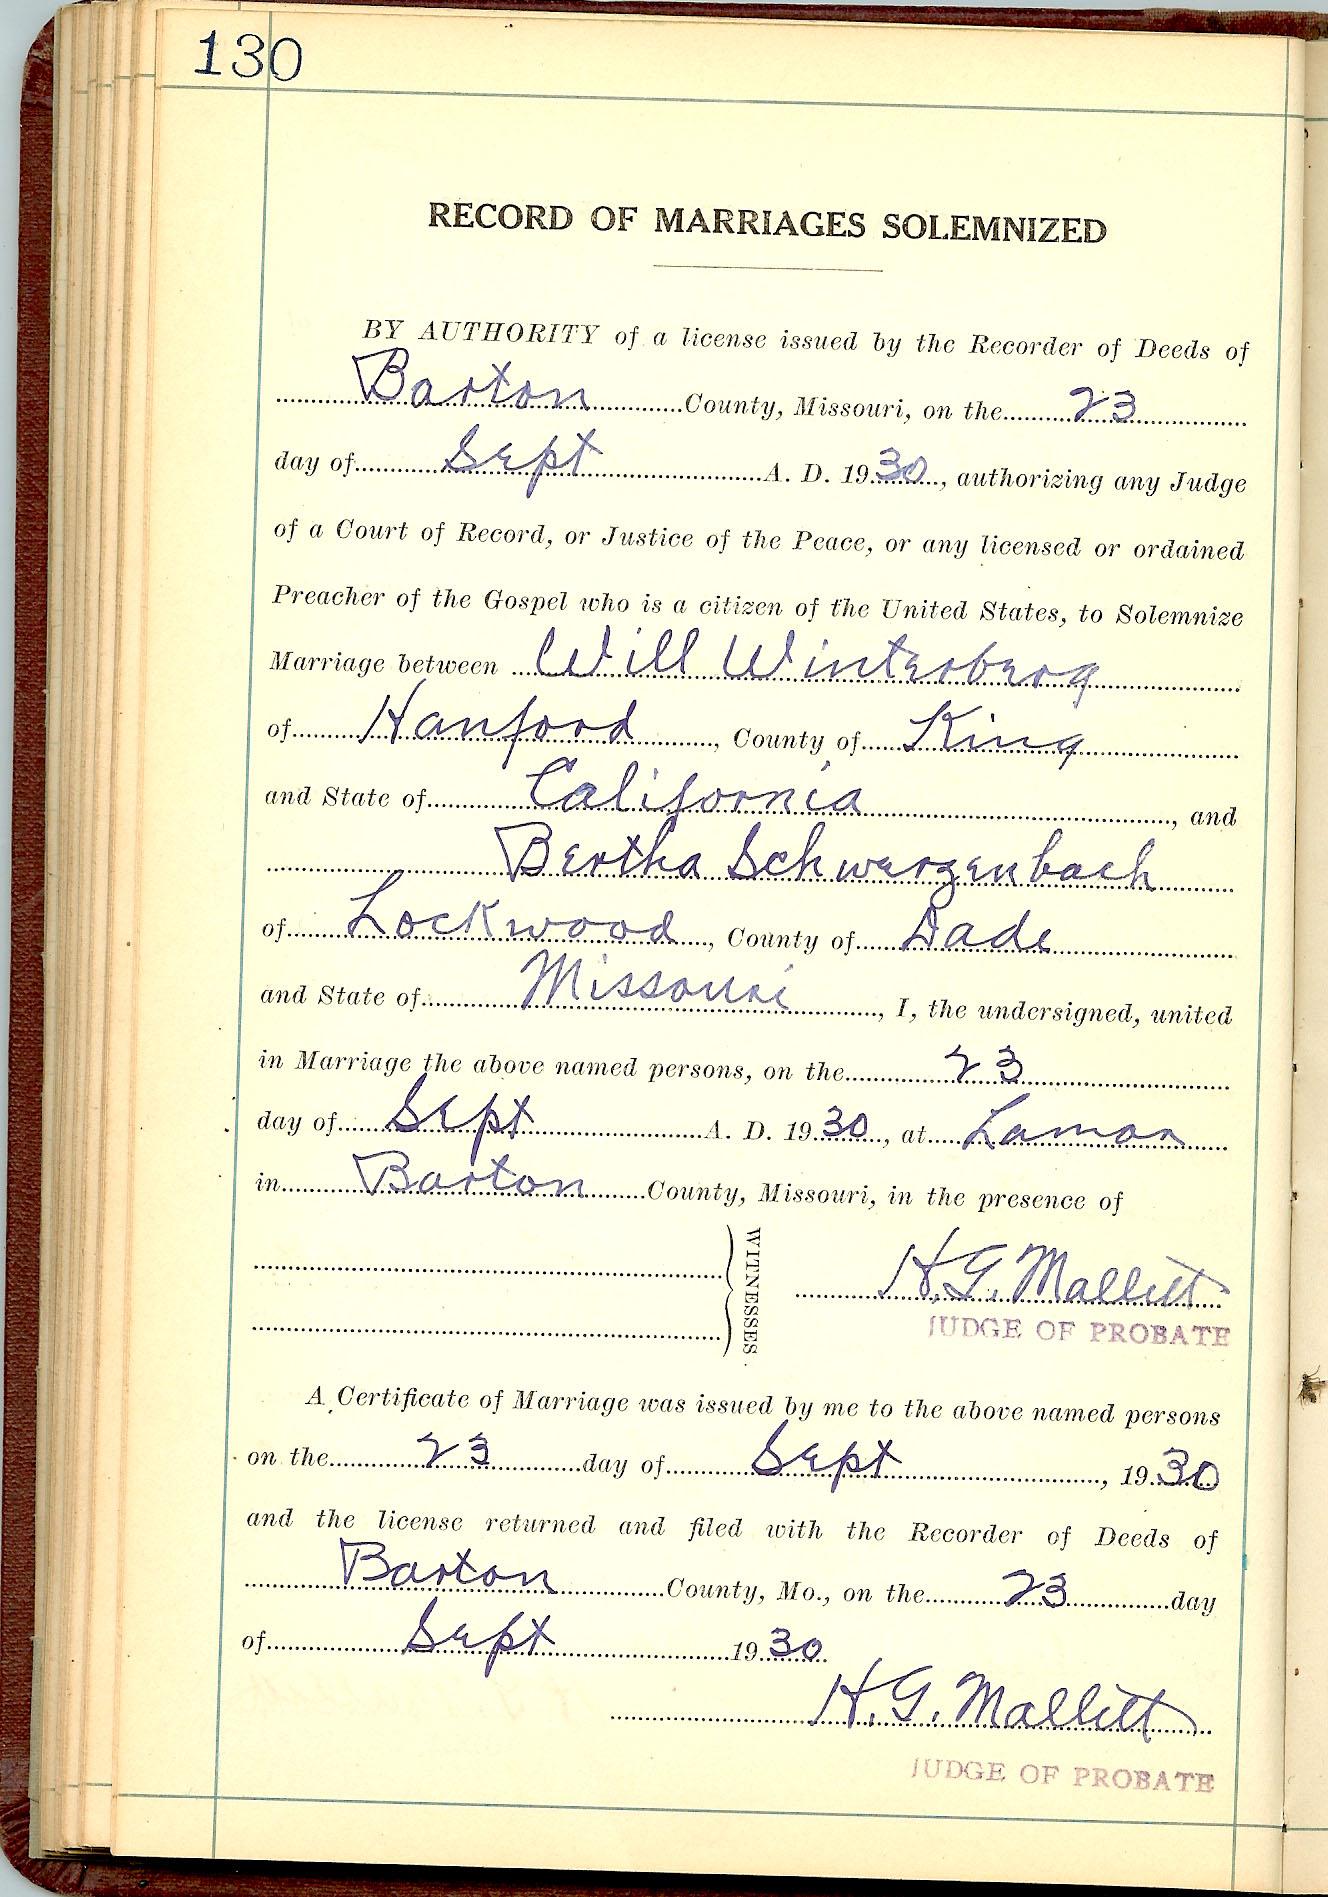 130
RECORD OF MARRIAGES SOLEMNIZED
BY AUTHORITY of a license issued by the Recorder of Deeds of
Barton County, Missouri, on the 23
day of Sept A. D. 1930, authorizing any Judge
of a Court of Record, or Justice of the Peace, or any licensed or ordained
Preacher of the Gospel who is a citizen of the United States, to Solemnize
Marriage between Will Winterberg
of Hanford, County of King
and State of California, and
Bertha Schwerzenbach
of Lockwood, County of Dade
and State of Missouri, I, the undersigned, united
in Marriage the above named persons, on the 23
day of Sept A. D. 1930, at Lamar
in Barton County, Missouri, in the presence of
WITNESSES
H. G. Mallitt
JUDGE OF PROBATE
A Certificate of Marriage was issued by me to the above named persons
on the 23 day of Sept, 1930
and the license returned and filed with the Recorder of Deeds of
Barton County, Mo., on the 23 day
of Sept 1930
H. G. Mallitt
JUDGE OF PROBATE